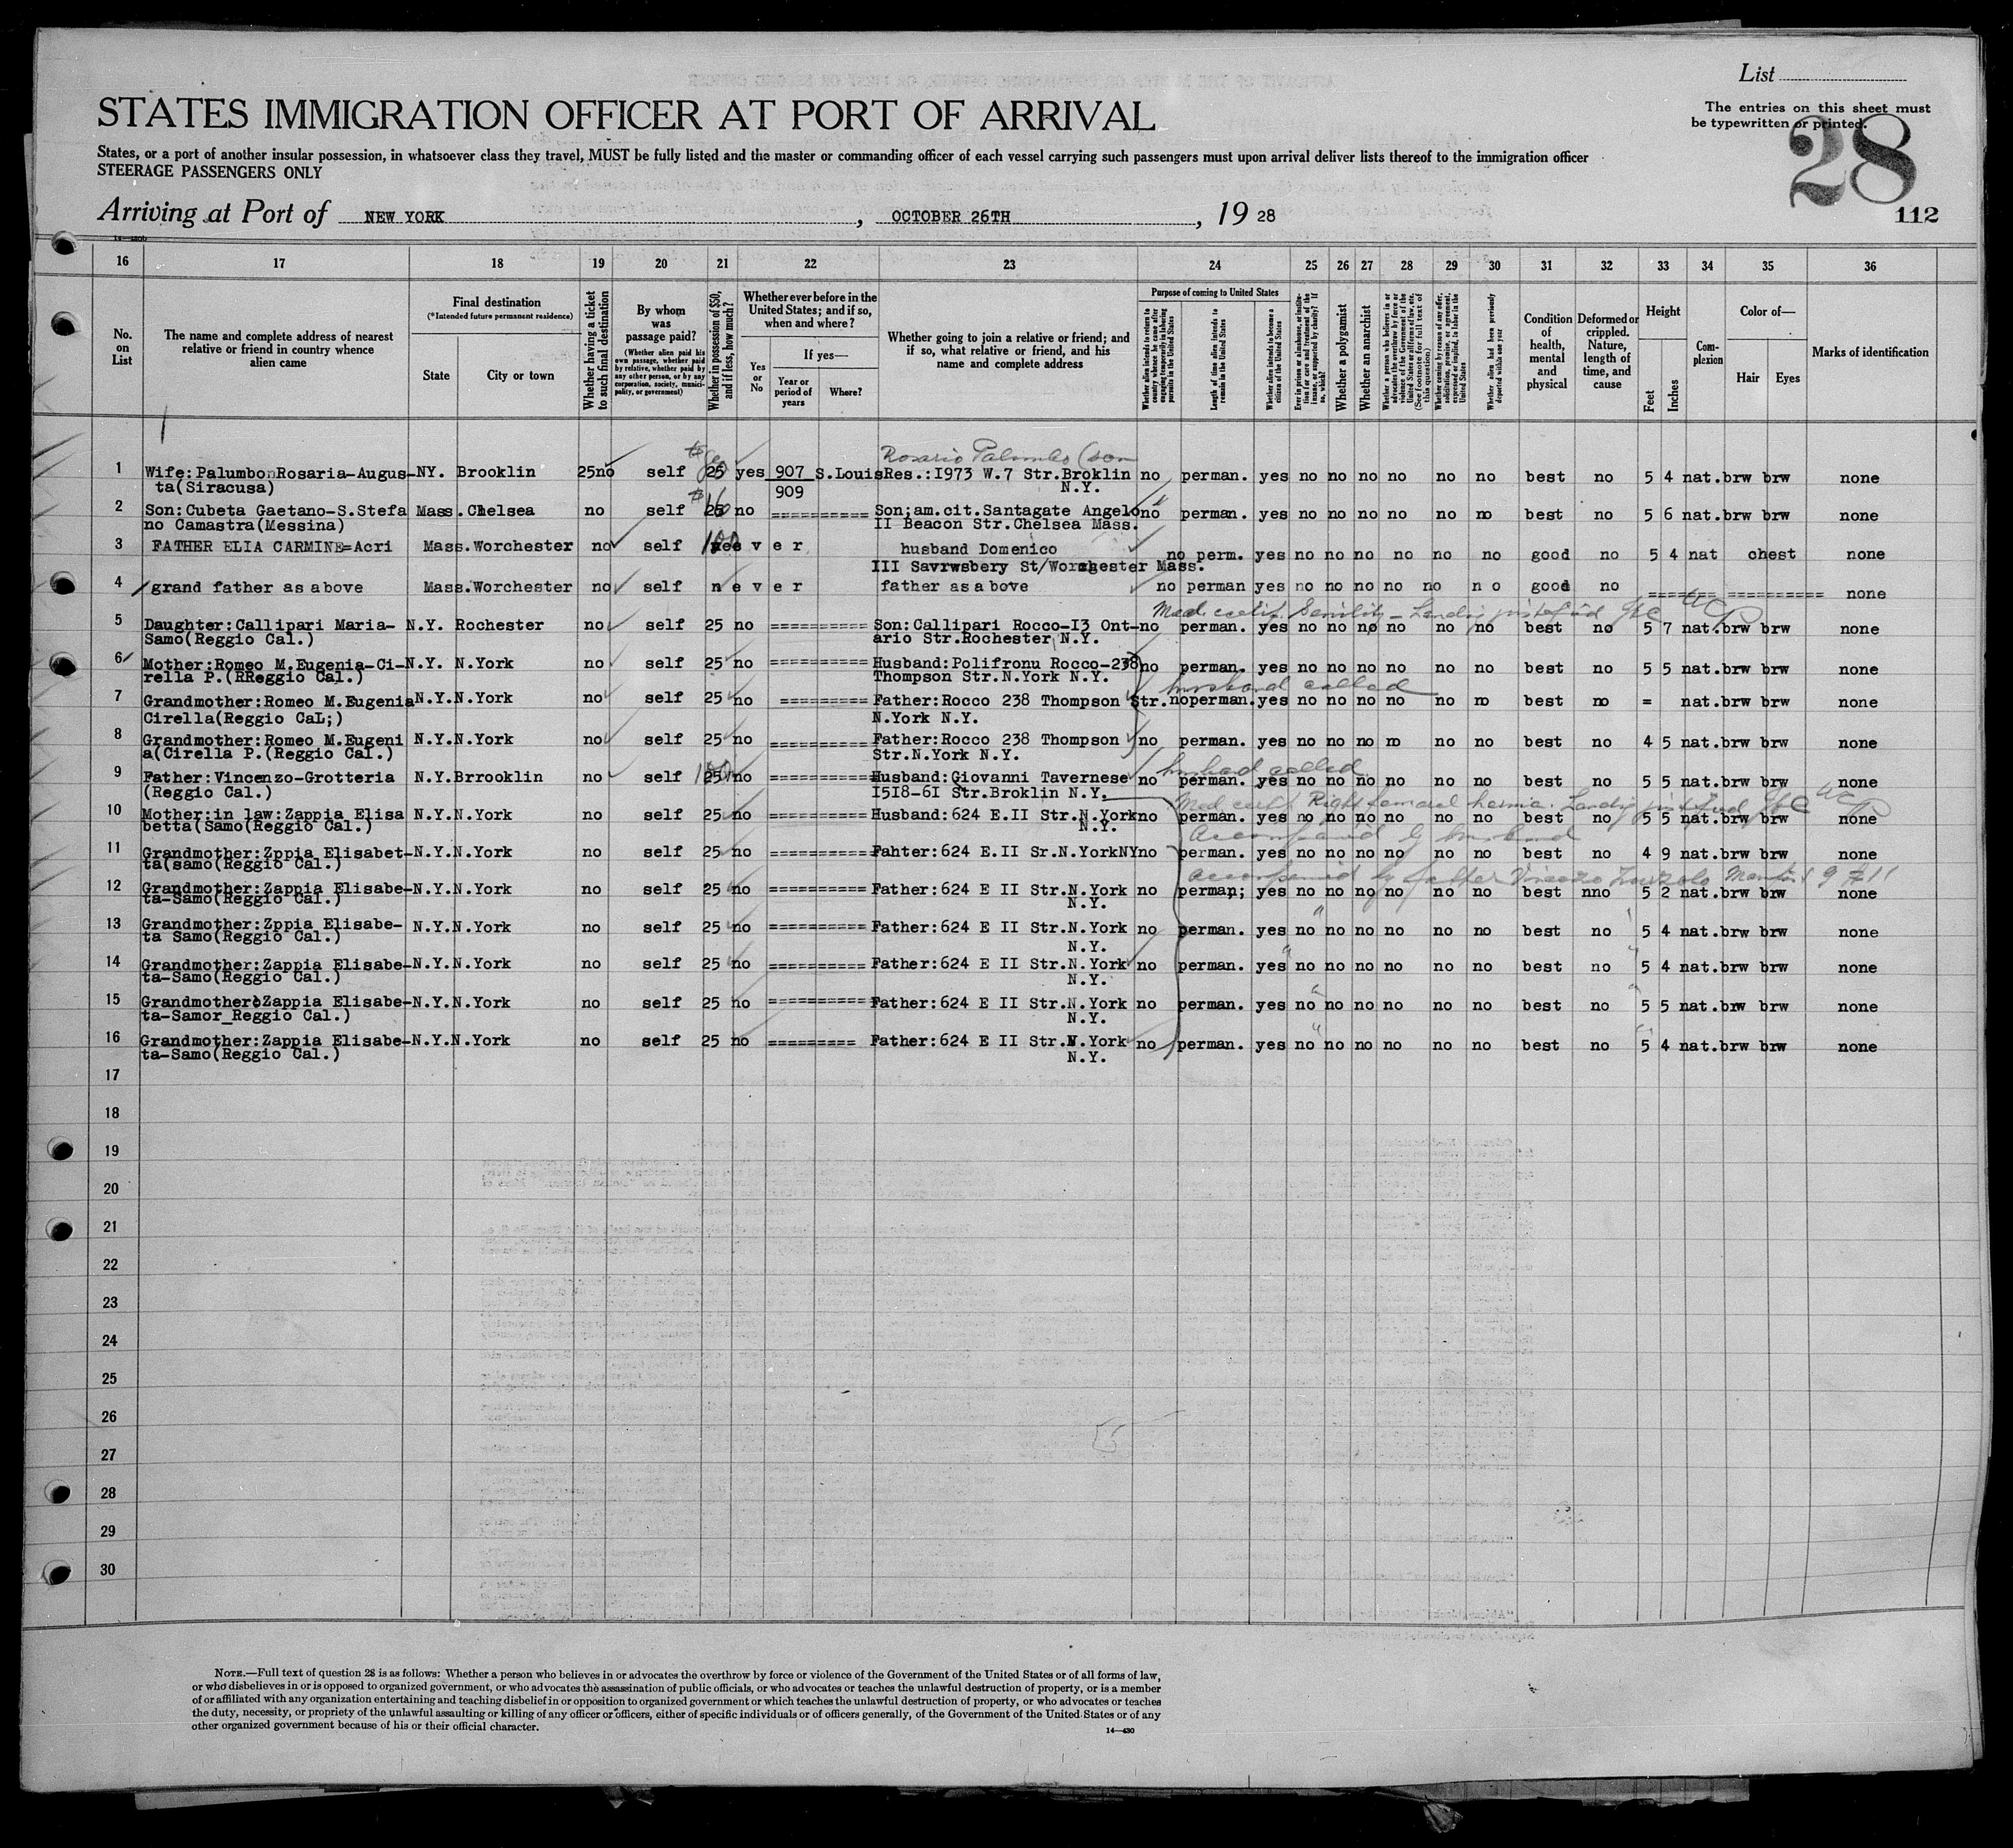 List
STATES IMMIGRATION OFFICER AT PORT OF ARRIVAL
The entries on this sheet must
be typewritten or printed.
28
States, or a port of another insular possession, in whatsoever class they travel, MUST be fully listed and the master or commanding officer of each vessel carrying such passengers must upon arrival deliver lists thereof to the immigration officer
STEERAGE PASSENGERS ONLY
Arriving at Port of NEW YORK, OCTOBER 26TH, 19 28
112
16 17 18 19 20 21 22 23 24 25 26 27 28 29 30 31 32 33 34 35 36
No. on List
The name and complete address of nearest relative or friend in country whence alien came
Final destination
(*Intended future permanent residence)
State
City or town
Whether having a ticket to such final destination
By whom was passage paid?
(Whether alien paid his own passage, whether paid by relative, whether paid by any other person, or by any corporation, society, municipality, or government)
Whether in possession of $50, and if less, how much?
Whether ever before in the United States; and if so, when and where?
Yes or No
If yes—
Year or period of years
Where?
Whether going to join a relative or friend; and if so, what relative or friend, and his name and complete address
Purpose of coming to United States
Whether alien intends to return to country whence he came after engaging temporarily in laboring pursuits in the United States
Length of time alien intends to remain in the United States
Whether alien intends to become a citizen of the United States
Ever in prison or almshouse, or institution for care and treatment of the insane, or supported by charity? If so, which?
Whether a polygamist
Whether an anarchist
Whether a person who believes in or advocates the overthrow by force or violence of the Government of the United States or all forms of law, etc. (See footnote for full text of this question)
Whether coming by reason of any offer, solicitation, promise, or agreement, expressed or implied, to labor in the United States
Whether alien had been previously deported within one year
Condition of health, mental and physical
Deformed or crippled. Nature, length of time, and cause
Height
Feet
Inches
Complexion
Color of—
Hair
Eyes
Marks of identification
Rosario Palumbo (son
1 Wife:Palumbo Rosaria-Augus- NY. Brooklin 25no self 25 yes 907 S.Louis Res.:I973 W.7 Str.Broklin no perman. yes no no no no no no best no 5 4 nat. brw brw none
ta(Siracusa) 909 N.Y.
2 Son:Cubeta Gaetano-S.Stefa Mass.Chelsea no self 25 no ========== Son;am.cit.Santagate Angelo no perman. yes no no no no no no best no 5 6 nat. brw brw none
no Camastra(Messina) II Beacon Str.Chelsea Mass.
3 FATHER ELIA CARMINE=Acri Mass.Worchester no self 100 never husband Domenico no perm. yes no no no no no no good no 5 4 nat chest none
III Savrwsbery St/Worchester Mass.
4 grand father as above Mass.Worchester no self never father as above no perman yes no no no no no no good no ===== ========== none
Med. certif. Senility - Landing
5 Daughter:Callipari Maria- N.Y. Rochester no self 25 no ========== Son:Callipari Rocco-I3 Ont- no perman. yes no no no no no no best no 5 7 nat. brw brw none
Samo(Reggio Cal.) ario Str.Rochester N.Y.
6 Mother:Romeo M.Eugenia-Ci- N.Y. N.York no self 25 no ========== Husband:Polifronu Rocco-238 no perman. yes no no no no no no best no 5 5 nat. brw brw none
rella P.(RReggio Cal.) Thompson Str.N.York N.Y.
husband called
7 Grandmother:Romeo M.Eugenia N.Y.N.York no self 25 no ========= Father:Rocco 238 Thompson Str. no perman. yes no no no no no no best no = nat. brw brw none
Cirella(Reggio CaL;) N.York N.Y.
8 Grandmother:Romeo M.Eugeni N.Y.N.York no self 25 no ========== Father:Rocco 238 Thompson no perman. yes no no no no no no best no 4 5 nat. brw brw none
a(Cirella P.(Reggio Cal.) Str.N.York N.Y.
husband called
9 Father:Vincenzo-Grotteria N.Y.Brrooklin no self 25 no =========== Husband:Giovanni Tavernese no perman. yes no no no no no no best no 5 5 nat. brw brw none
(Reggio Cal.) I5I8-6I Str.Broklin N.Y.
Med cert Right femoral hernia. Landing
10 Mother:in law:Zappia Elisa N.Y.N.York no self 25 no ========== Husband:624 E.II Str.N.York no perman. yes no no no no no no best no 5 5 nat. brw brw none
betta(Samo(Reggio Cal.) N.Y.
Accompanied by husband
11 Grandmother:Zppia Elisabet- N.Y.N.York no self 25 no ========== Fahter:624 E.II Sr.N.YorkNY no perman. yes no no no no no no best no 4 9 nat. brw brw none
ta(samo(Reggio Cal.)
accompanied by father Vincenzo Manifest 9 #11
12 Grandmother:Zappia Elisabe- N.Y.N.York no self 25 no ========== Father:624 E II Str.N.York no perman; yes no no no no no no best nno 5 2 nat. brw brw none
ta-Samo(Reggio Cal.) N.Y.
13 Grandmother:Zppia Elisabe- N.Y.N.York no self 25 no ========== Father:624 E II Str.N.York no perman. yes no no no no no no best no 5 4 nat. brw brw none
ta Samo(Reggio Cal.) N.Y.
14 Grandmother:Zappia Elisabe- N.Y.N.York no self 25 no ========== Father:624 E II Str.N.York no perman. yes no no no no no no best no 5 4 nat. brw brw none
ta-Samo(Reggio Cal.) N.Y.
15 Grandmother:Zappia Elisabe- N.Y.N.York no self 25 no ========== Father:624 E II Str.N.York no perman. yes no no no no no no best no 5 5 nat. brw brw none
ta-Samor_Reggio Cal.) N.Y.
16 Grandmother:Zappia Elisabe- N.Y.N.York no self 25 no ========= Father:624 E II Str.N.York no perman. yes no no no no no no best no 5 4 nat. brw brw none
ta-Samo(Reggio Cal.) N.Y.
17
18
19
20
21
22
23
24
25
26
27
28
29
30
NOTE.—Full text of question 28 is as follows: Whether a person who believes in or advocates the overthrow by force or violence of the Government of the United States or of all forms of law,
or who disbelieves in or is opposed to organized government, or who advocates the assassination of public officials, or who advocates or teaches the unlawful destruction of property, or is a member
of or affiliated with any organization entertaining and teaching disbelief in or opposition to organized government or which teaches the unlawful destruction of property, or who advocates or teaches
the duty, necessity, or propriety of the unlawful assaulting or killing of any officer or officers, either of specific individuals or of officers generally, of the Government of the United States or of any
other organized government because of his or their official character.
14—430